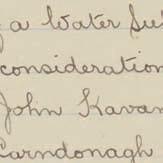 a Water Su
consideration
John Kavan
Carndonagh